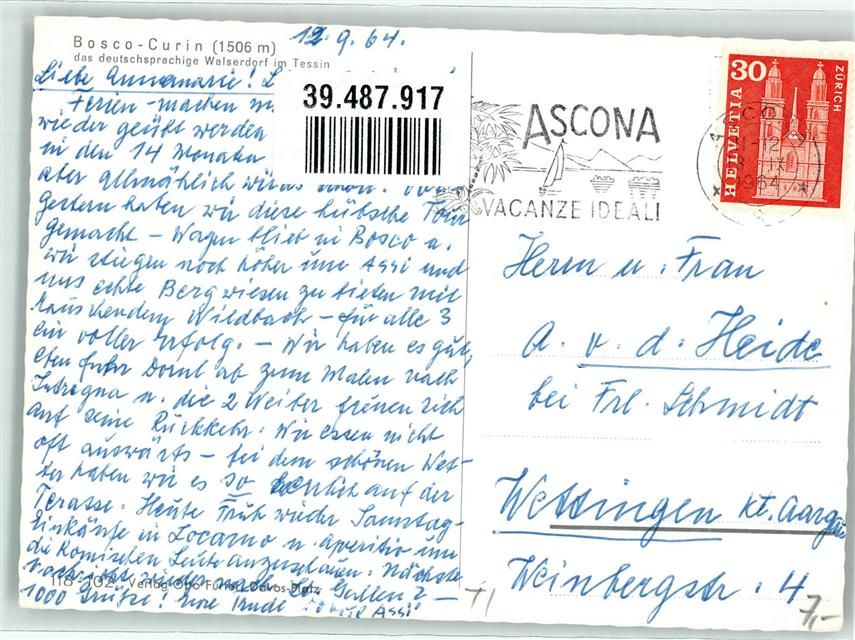 Bosco-Curin (1506 m)
das deutschsprachige Walserdorf im Tessin
12.9.64.
Liebe Annemarie!
Ferien-machen
wieder geübt werden
in den 14 Monaten
aber allmählich
gestern haben wir diese hübsche Tour
gemacht – Wagen blieb in Bosco u.
wir stiegen noch höher um Assi und
uns echte Bergwiesen zu bieten mit
rauschendem Wildbach – für alle 3
ein voller Erfolg. – Wir haben es gut,
eben fuhr Doml ab zum Malen nach
Intragna u. die 2 Weiber freuen sich
auf seine Rückkehr. Wir essen nicht
oft auswärts – bei dem schönen Wet-
ter haben wir es so herrlich auf der
Terasse. Heute früh wieder Samstag-
einkäufe in Locarno u. Aperitio um
die komischen Leute anzuschauen. Nächste
Woche wieder nach St. Gallen? –
1000 Grüsse! Eure Trude Assi
118-102 Verlag Otto Furter, Davos-Platz
39.487.917
ASCONA
VACANZE IDEALI
1964
30
HELVETIA
ZÜRICH
Herrn u. Frau
A. v. d. Heide
bei Frl. Schmidt
Wettingen Kt. Aargau
Weinbergstr. 4
7,-